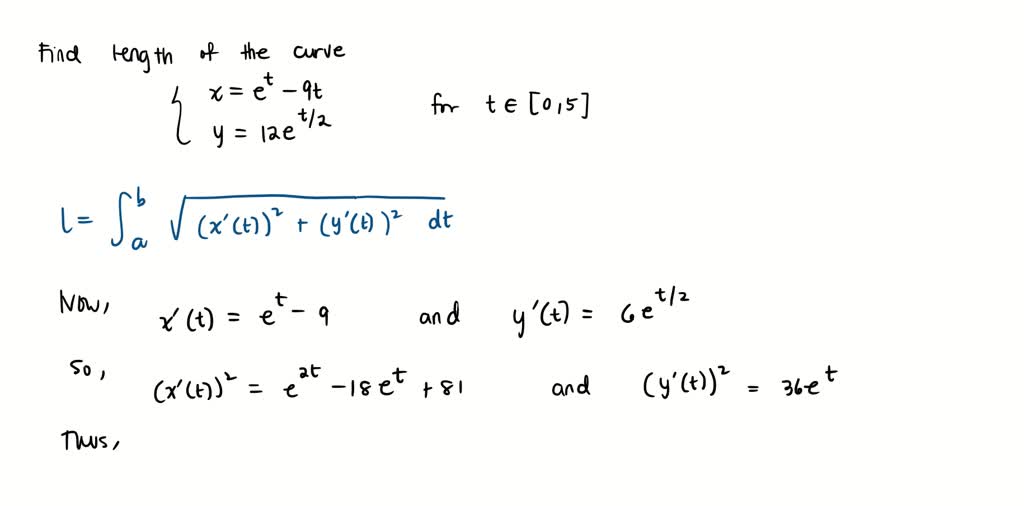 Find length of the curve
x = e^t - 9t
y = 12e^{t/2}
for t ∈ [0,5]
l = ∫_a^b √((x'(t))² + (y'(t))²  dt
Now, x'(t) = e^t - 9 and y'(t) = 6e^{t/2}
So, (x'(t))² = e^{2t} - 18e^t + 81 and (y'(t))² = 36e^t
Thus,